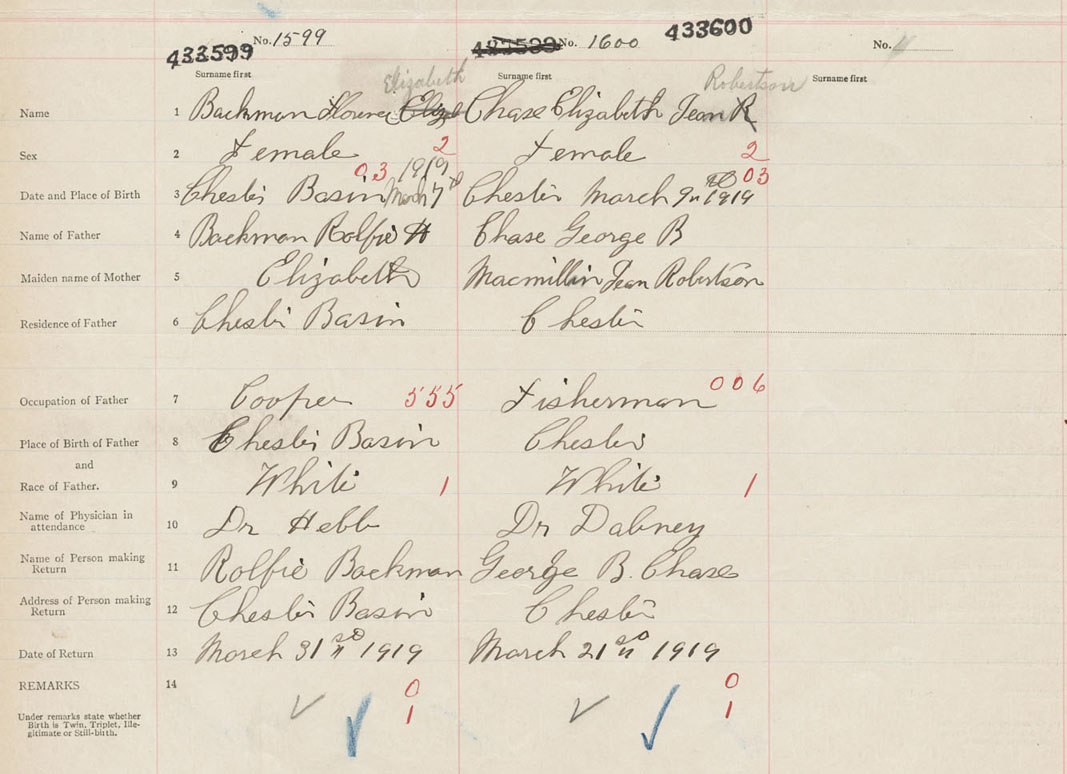 433599 No. 1599 433599 No. 1600 433600 No. 4
Surname first Surname first Surname first
Elizabeth Robertson
Name 1 Backman Florence Eliz Chase Elizabeth Jean R
Sex 2 Female 2 Female 2
03 1919 03
Date and Place of Birth 3 Chester Basin March 7th Chester March 9th 1919
Name of Father 4 Backman Rolfie H Chase George B
Maiden name of Mother 5 Elizabeth Macmillin Jean Robertson
Residence of Father 6 Chester Basin Chester
Occupation of Father 7 Cooper 555 Fisherman 006
Place of Birth of Father 8 Chester Basin Chester
and
Race of Father. 9 White 1 White 1
Name of Physician in
attendance 10 Dr Hebb Dr Dabney
Name of Person making
Return 11 Rolfie Backman George B. Chase
Address of Person making
Return 12 Chester Basin Chester
Date of Return 13 March 31 1919 March 21 1919
REMARKS 14 0 0
Under remarks state whether 1 1
Birth is Twin, Triplet, Ille-
gitimate or Still-birth.